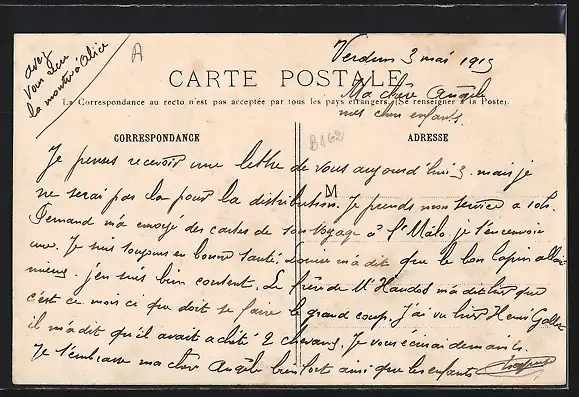 avez
vous reçu
la montre d'Alice
A
Verdun 3 mai 1915
CARTE POSTALE
Ma chère Angèle
La Correspondance au recto n'est pas acceptée par tous les pays étrangers. (Se renseigner à la Poste).
mes chers enfants.
B162
CORRESPONDANCE
ADRESSE
Je pensais recevoir une lettre de vous aujourd'hui 3. mais je
M
ne serai pas la pour la distribution. Je prends mon service a 10h.
Fernand m'a envoyé des cartes de son voyage à St Malo. je t'en envoie
une. Je suis toujours en bonne santé. m'a dit que le bon lapin allait
mieux. j'en suis bien content. Le frère de Mr m'a dit hier que
c'est ce mois ci que doit se faire le grand coup. J'ai vu hier Henri
il m'a dit qu'il avait acheté 2 chevaux. Je vous écrirai demain.
Je t'embrasse ma chère Angèle bien fort ainsi que les enfants